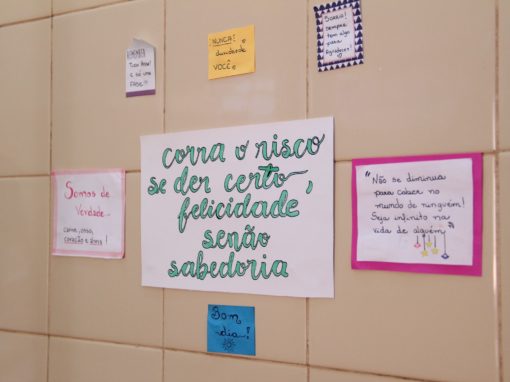 REMEMBER
Tudo passa!
é só uma
FASE!!!
NUNCA!
duvide de
VOCÊ.
SORRIA!
sempre
tem algo
para
Agradecer!
corra o risco
se der certo,
felicidade,
senão
sabedoria
Somos de
Verdade
carne, osso,
coração e alma!
"Não se diminua
para caber no
mundo de ninguém!
Seja infinito na
vida de alguém"
Bom
dia!